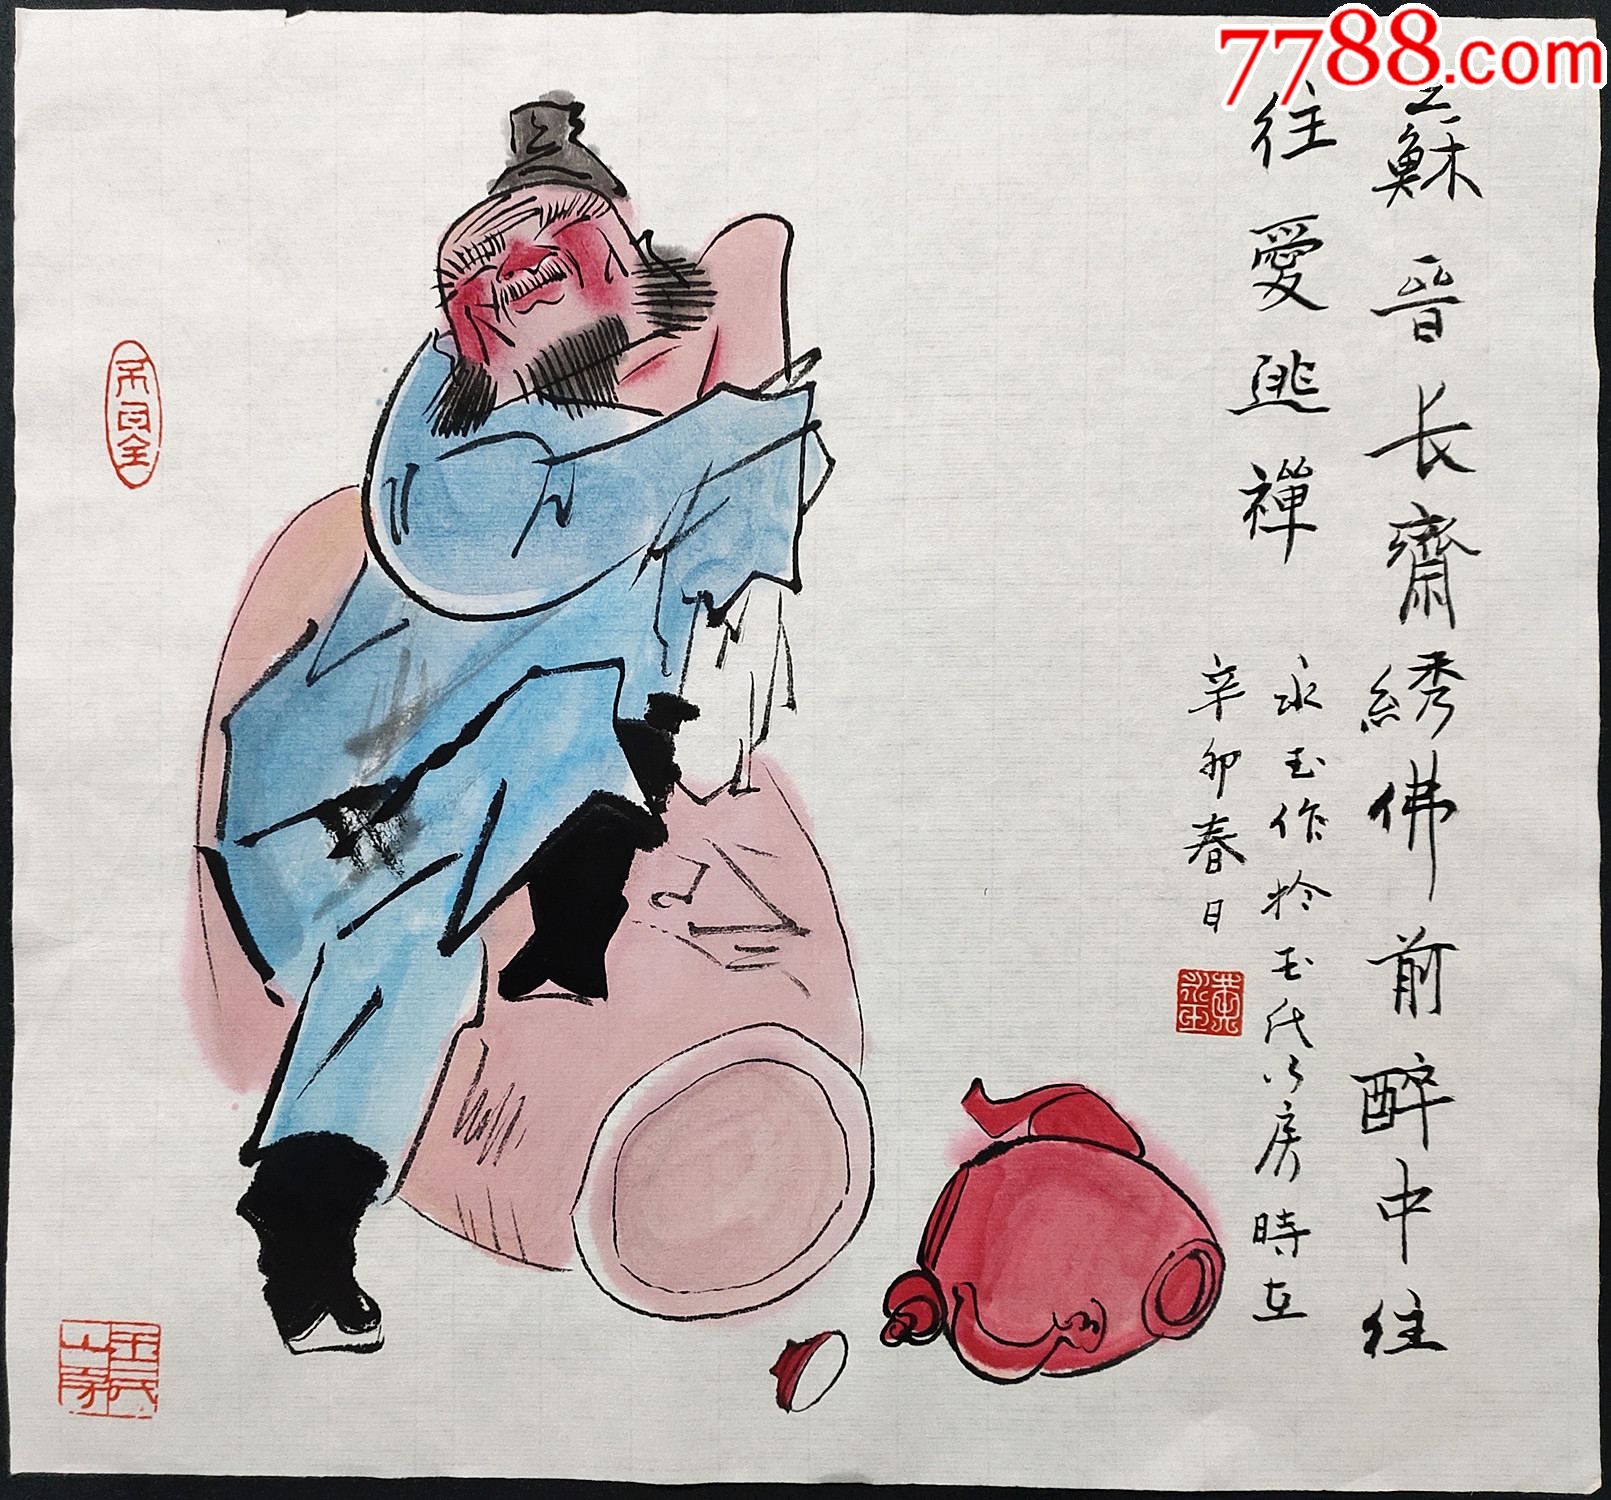 7788.com
蘇晋长齋綉佛前醉中往
往愛逃禪
永玉作於玉氏山房時在
辛卯春日
黄永玉